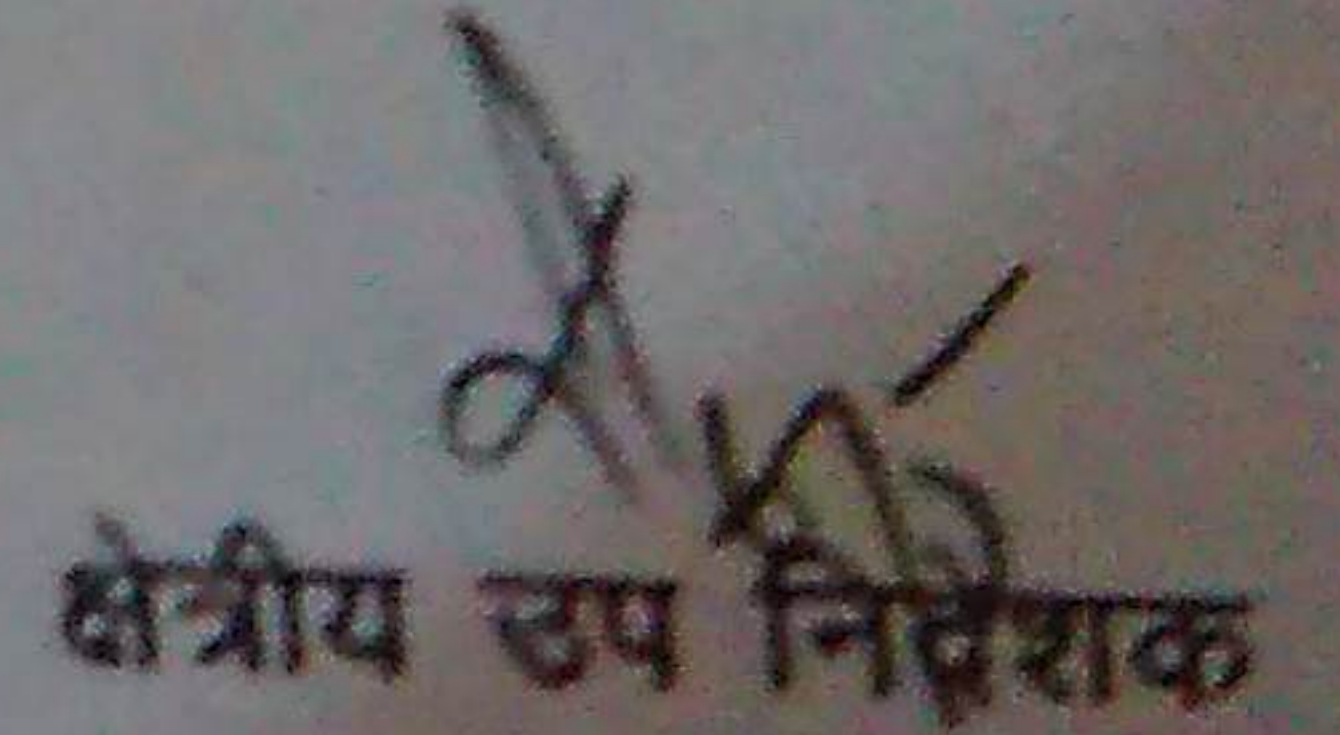 क्षेत्रीय उप निदेशक